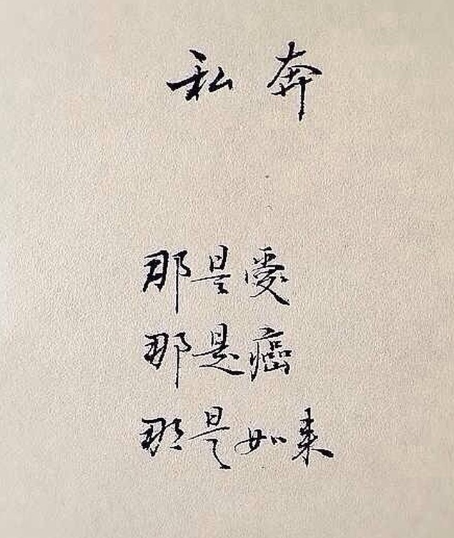 私奔
那是愛
那是癌
那是如来